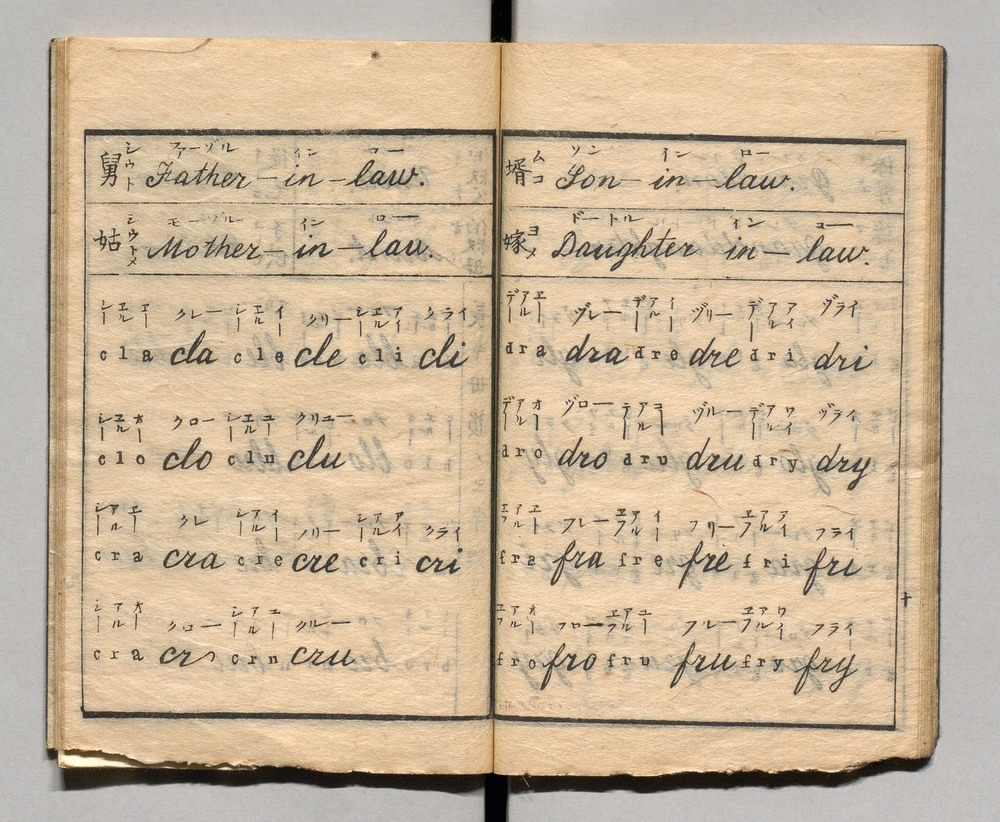 舅 シウト ファーゾル イン ロー
Father-in-law.
姑 シウトメ モーゾル イン ロー
Mother-in-law.
シーエルエー クレー シーエルイー クリー シーエルアイ クライ
cla cla cle cle cli cli
シーエルオー クロー シーエルユー クリユー
clo clo clu clu
シーアルエー クレ シーアルイー クリー シーアルアイ クライ
cra cra cre cre cri cri
シーアルオー クロー シーアルユー クルー
cra cro crn cru
壻 ムコ ソン イン ロー
Son-in-law.
嫁 ヨメ ドートル イン ロー
Daughter in-law.
デアルエー ヅレー デアルイー ヅリー デアルアイ ヅライ
dra dra dre dre dri dri
デアルオー ヅロー デアルユー ヅルー デアルワイ ヅライ
dro dro dru dru dry dry
エフアルエー フレー エフアルイー フリー エフアルアイ フライ
fra fra fre fre fri fri
エフアルオー フロー エフアルユー フルー エフアルワイ フライ
fro fro fru fru fry fry